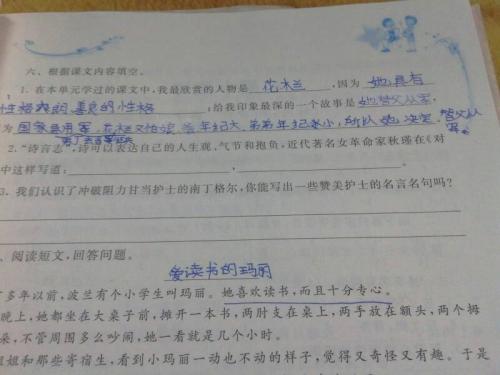 六、根据课文内容填空。
1. 在本单元学过的课文中，我最欣赏的人物是 花木兰 ,因为 她具有
性格爽朗、善良的性格 ,给我印象最深的一个故事是 她替父从军，
为 国家要用军，花木兰父怕 年纪大，弟弟年纪太小，所以她决定 替父从
军。
2. “诗言志”,诗可以表达自己的人生观,气节和抱负,近代著名女革命家秋瑾在《对
中这样写道：
3. 我们认识了冲破阻力甘当护士的南丁格尔,你能写出一些赞美护士的名言名句吗?
、阅读短文,回答问题。
爱读书的玛丽
多年以前,波兰有个小学生叫玛丽。她喜欢读书,而且十分专心。
晚上,她都坐在大桌子前,摊开一本书,两肘支在桌上,两手放在额头,两个拇
朵,不管周围多么吵闹,她一看就是几个小时。
姐和那些寄宿生,看到小玛丽一动也不动的样子,觉得又奇怪又有趣。于是